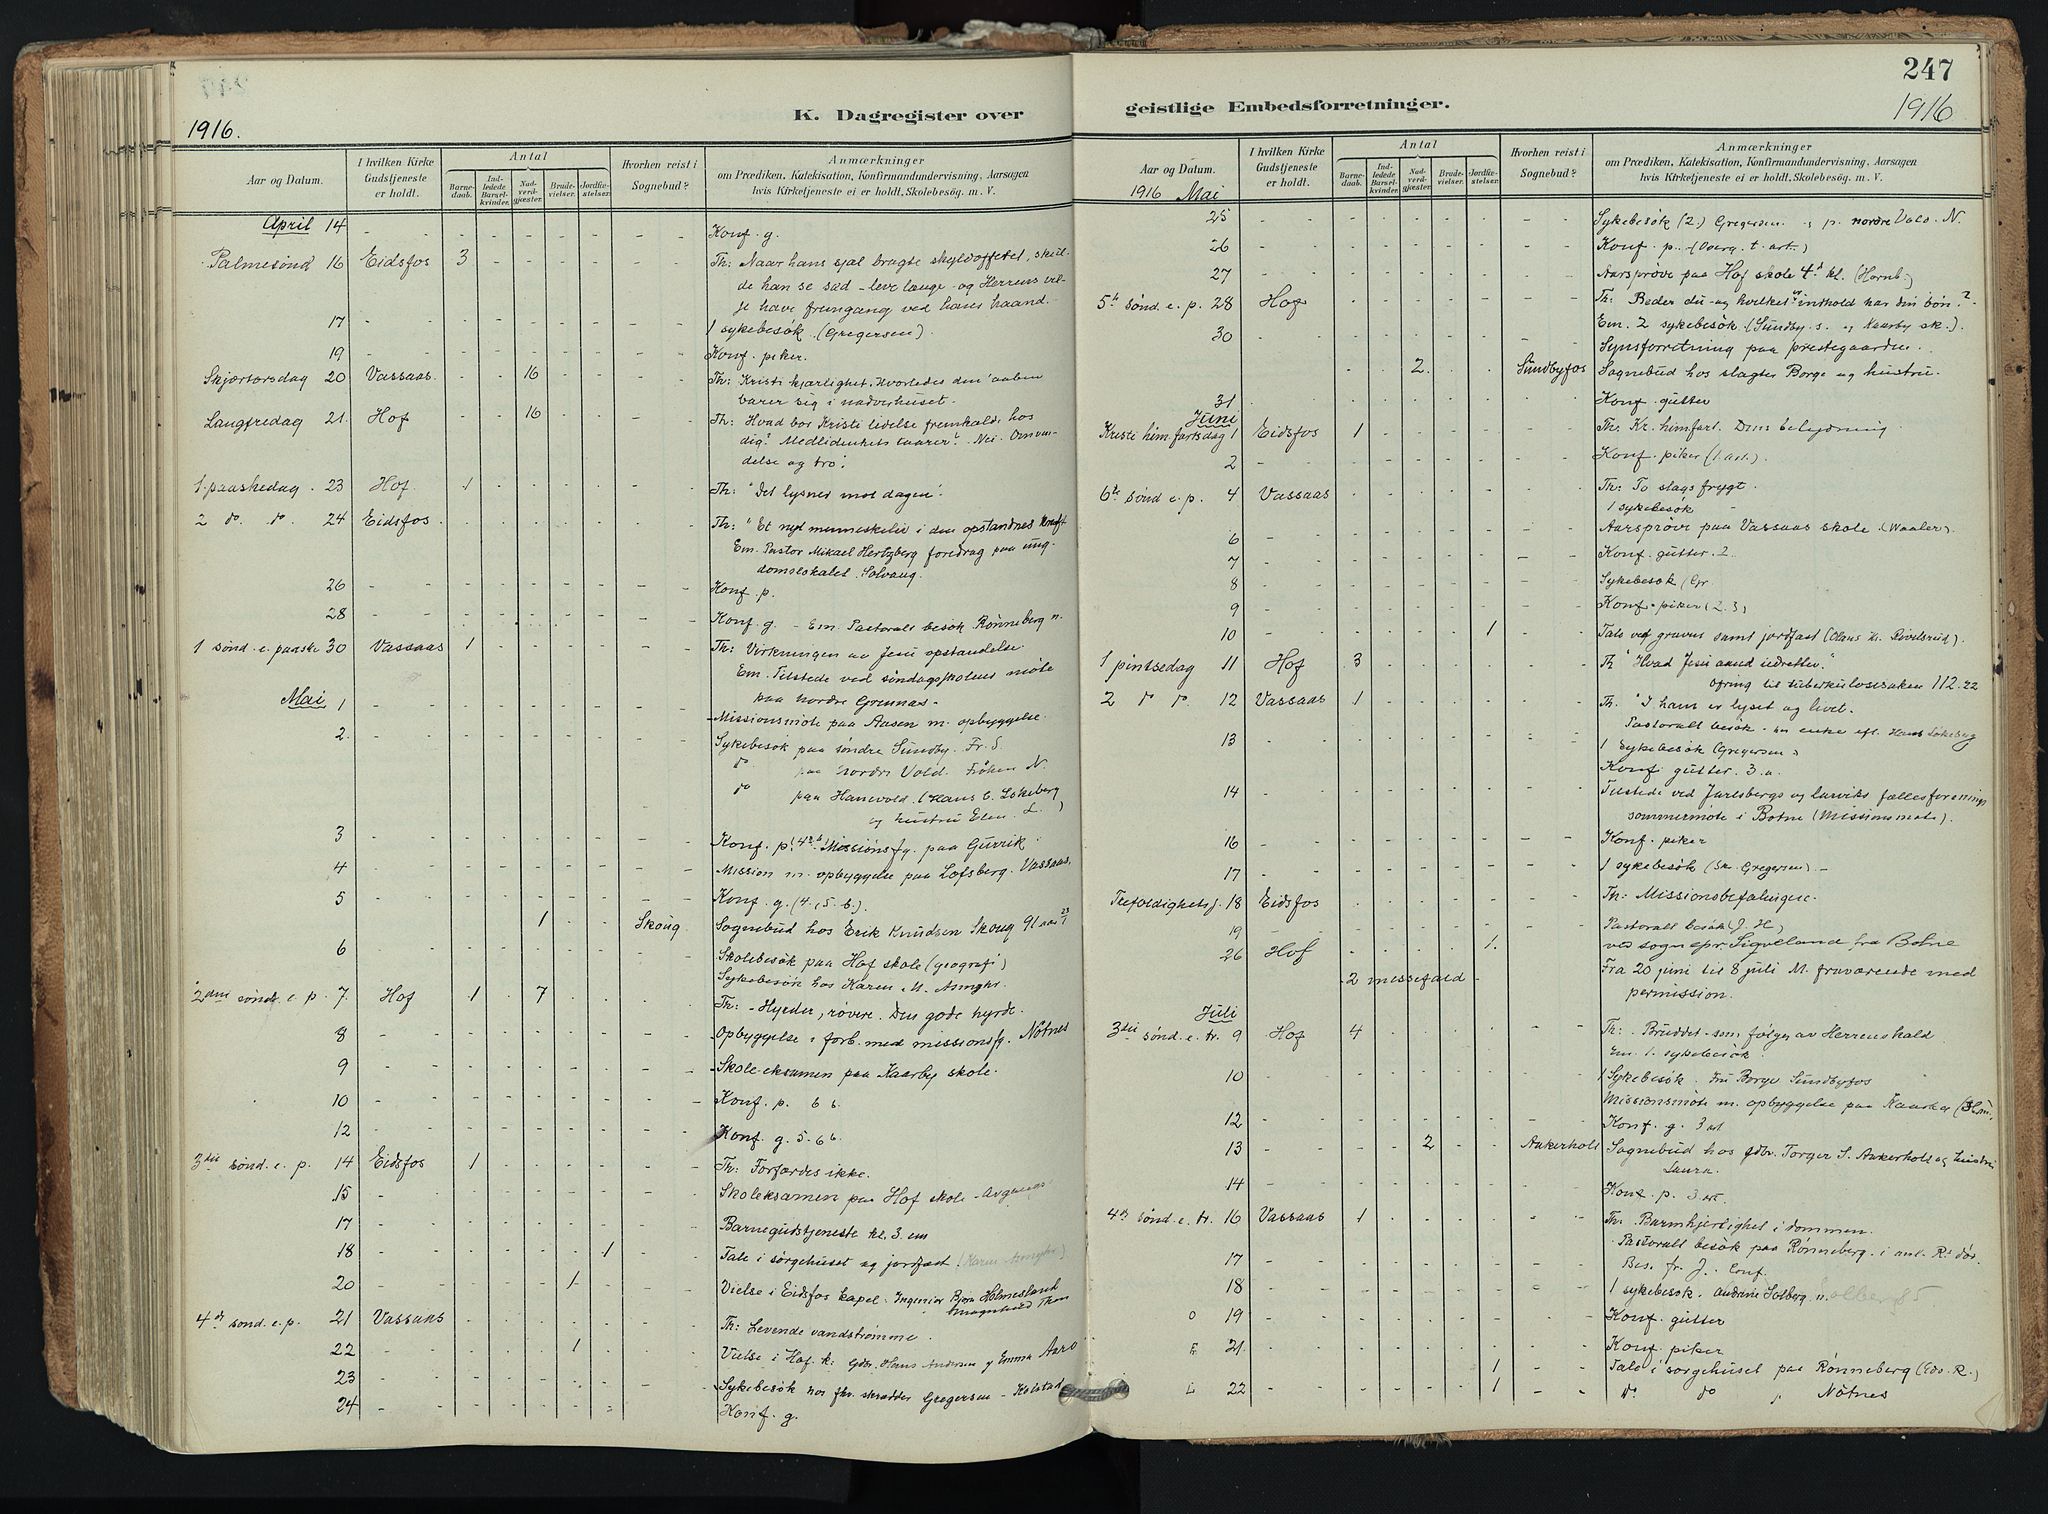 247
K. Dagregister over
geistlige Embedsforretninger.
1916.
1916
Aar og Datum.
I hvilken Kirke Gudstjeneste er holdt.
Antal
Barnedaab.
Indledede Barselkvinder.
Nadverdgjæster.
Brudevielser.
Jordfæstelser.
Hvorhen reist i Sognebud?
Anmærkninger
om Prædiken, Katekisation, Konfirmandundervisning, Aarsagen
hvis Kirketjeneste ei er holdt. Skolebesøg. m. V.
April 14 Konf. g.
Palmesønd 16 Eidsfos 3 Th: Naar hans sjæl bragte skyldofferet, skul-
de han se sæd - leve længe - og Herrens vil-
je have fremgang ved hans haand.
17 1 sykebesøk. (Gregersen).
19 Konf. piker.
Skjærtorsdag 20 Vassaas 16 Th: Kristi kjærlighet. Hvorledes den aaben
barer sig i nadverhuset.
Langfredag 21. Hof 16 Th: Hvad bør Kristi lidelse fremkalde hos
dig? Medlidenhets taarer? Nei. Omven-
delse og tro.
1. paaskedag 23 Hof. 1 Th: "Det lysner mot dagen".
2 do. do. 24 Eidsfos Th: "Et nyt menneskeliv i den opstandnes kraft
Em. Pastor Mikael Hertzberg foredrag paa ung-
domslokalet Solvang.
26 Konf. p.
28 Konf. g. - Em. Pastoralt besøk Rønneberg n.
1 sønd. e. paaske 30 Vassaas 1 Th: Virkningen av Jesu opstandelse.
Em. Tilstede ved søndagsskolens møte
paa nordre Grennæs-
Mai 1 Missionsmøte paa Aasen m. opbyggelse.
2. Sykebesøk paa søndre Sundby. Fr. S.
do paa nordre Vold. Frøken N.
do paa Hanevold. (Hans C. Løkeberg
og hustru Elen. L.)
3 Konf. p. Missionsfg. paa Gurrik.
4 Mission m. opbyggelse paa Løfsberg. Vassaas.
5 Konf. g. (4. 5. b.).
1 Skoug Sognebud hos Erik Knudsen Skoug 91 aar
6 Skolebesøk paa Hof skole (geografi)
Sykebesøk hos Karen M.
2den sønd. e. p. 7. Hof 1 7 Th: - Hyrder, røvere. Den gode hyrde.
8 Opbyggelse i forb. med missionsfg. Nøtnes
9 Skole-eksamen paa Kaarby skole.
10 Konf. p. 6 b.
12 Konf. g. 5. 6 b.
3die sønd. e. p. 14 Eidsfos 1 Th: Forfærdes ikke.
15 Skoleksamen paa Hof skole - Avgangs
17 Barnegudstjeneste kl. 3. em
18 1 Tale i sørgehuset og jordfæst.
20 1 Vielse i Eidsfos kapel. Ingeniør Bjørn Holmesland
4de sønd. e. p. 21 Vassaas Th: Levende vandstrømme.
22 1 Vielse i Hof k: Gdbr. Hans Andersen og Emma Aarø
23 Sykebesøk hos fhv. skrædder Gregersen - Holstad
24 Konf. g.
Aar og Datum.
I hvilken Kirke Gudstjeneste er holdt.
Antal
Barnedaab.
Indledede Barselkvinder.
Nadverdgjæster.
Brudevielser.
Jordfæstelser.
Hvorhen reist i Sognebud?
Anmærkninger
om Prædiken, Katekisation, Konfirmandundervisning, Aarsagen
hvis Kirketjeneste ei er holdt. Skolebesøg. m. V.
1916 Mai
25 Sykebesøk (2.) Gregersen og p. nordre N.
26 Konf. p. (Overg. t. art.)
27 Aarsprøve paa Hof skole 4de kl. (Hornb.)
5te sønd. e. p. 28 Hof Th: Beder du og hvilket indhold har din bøn?
Em. 2 sykebesøk (Sundby s. og Kaarby sk.).
30 Synsforretning paa prestegaarden.
2 Sundbyfos Sognebud hos slagter Borge og hustru.
31 Konf. gutter
Juni
Kristi him.fartsdag 1 Eidsfos 1 Th: Kr. himfart. Dens betydning
2 Konf. piker (1. art.)
6te sønd e. p. 4 Vassaas Th: To slags frygt.
1 sykebesøk
6 Aarsprøve paa Vassaas skole (Waaler).
7 Konf. gutter. 2.
8 Sykebesøk (Gr.
9 Konf. piker (2. 3)
10 1 Tale ved graven samt jordfæst
1 pintsedag 11 Hof 3 Th "Hvad Jesu aand udretter."
Ofring til tuberkulosesaken 112.22
2 do do 12 Vassaas 1 Th. "I ham er lyset og livet.
Pastoralt besøk. hos enke eft. Hans Løkeberg
13 1 sykebesøk (Gregersen)
Konf. gutter. 3. a.
14 Tilstede ved Jarlsbergs og Larviks fællesforenings
sommermøte i Botne (Missionsmøte).
16 Konf. piker
17 1 sykebesøk (Sk. Gregersen) -
Trefoldighetss. 18 Eidsfos Th: Missionsbefalingen.
19 Pastoralt besøk (J. H)
26 Hof 1. ved sognepr. Sigveland fra Botne
- 2 messefald - Fra 20 juni til 8 juli M. fraværende med
permission.
Juli
3die sønd. e. tr. 9 Hof 4 Th: Bruddet som følger av Herrens kald
Em. 1. sykebesøk.
10 1 Sykebesøk. Fru Borge Sundbyfos
Missionsmøte m. opbyggelse paa
12 Konf. g. 3 art
13 2 Aakerholt Sognebud hos gdbr. Torger S. Aakerholt og hustru
Laura.
14 Konf. p. 3 art.
4de sønd. e. tr. 16 Vassaas 1 Th: Barmhjertighet i dommen.
Pastoralt besøk paa Rønneberg. i anl. Rs død.
17 Bes. fr. J. Conf.
18 1 sykebesøk. Andrine Solberg
O 19 Konf. gutter
F 21. Konf. piker
1 Tale i sørgehuset paa Rønneberg (Edv. R.)
L 22 1 do do Nøtnes